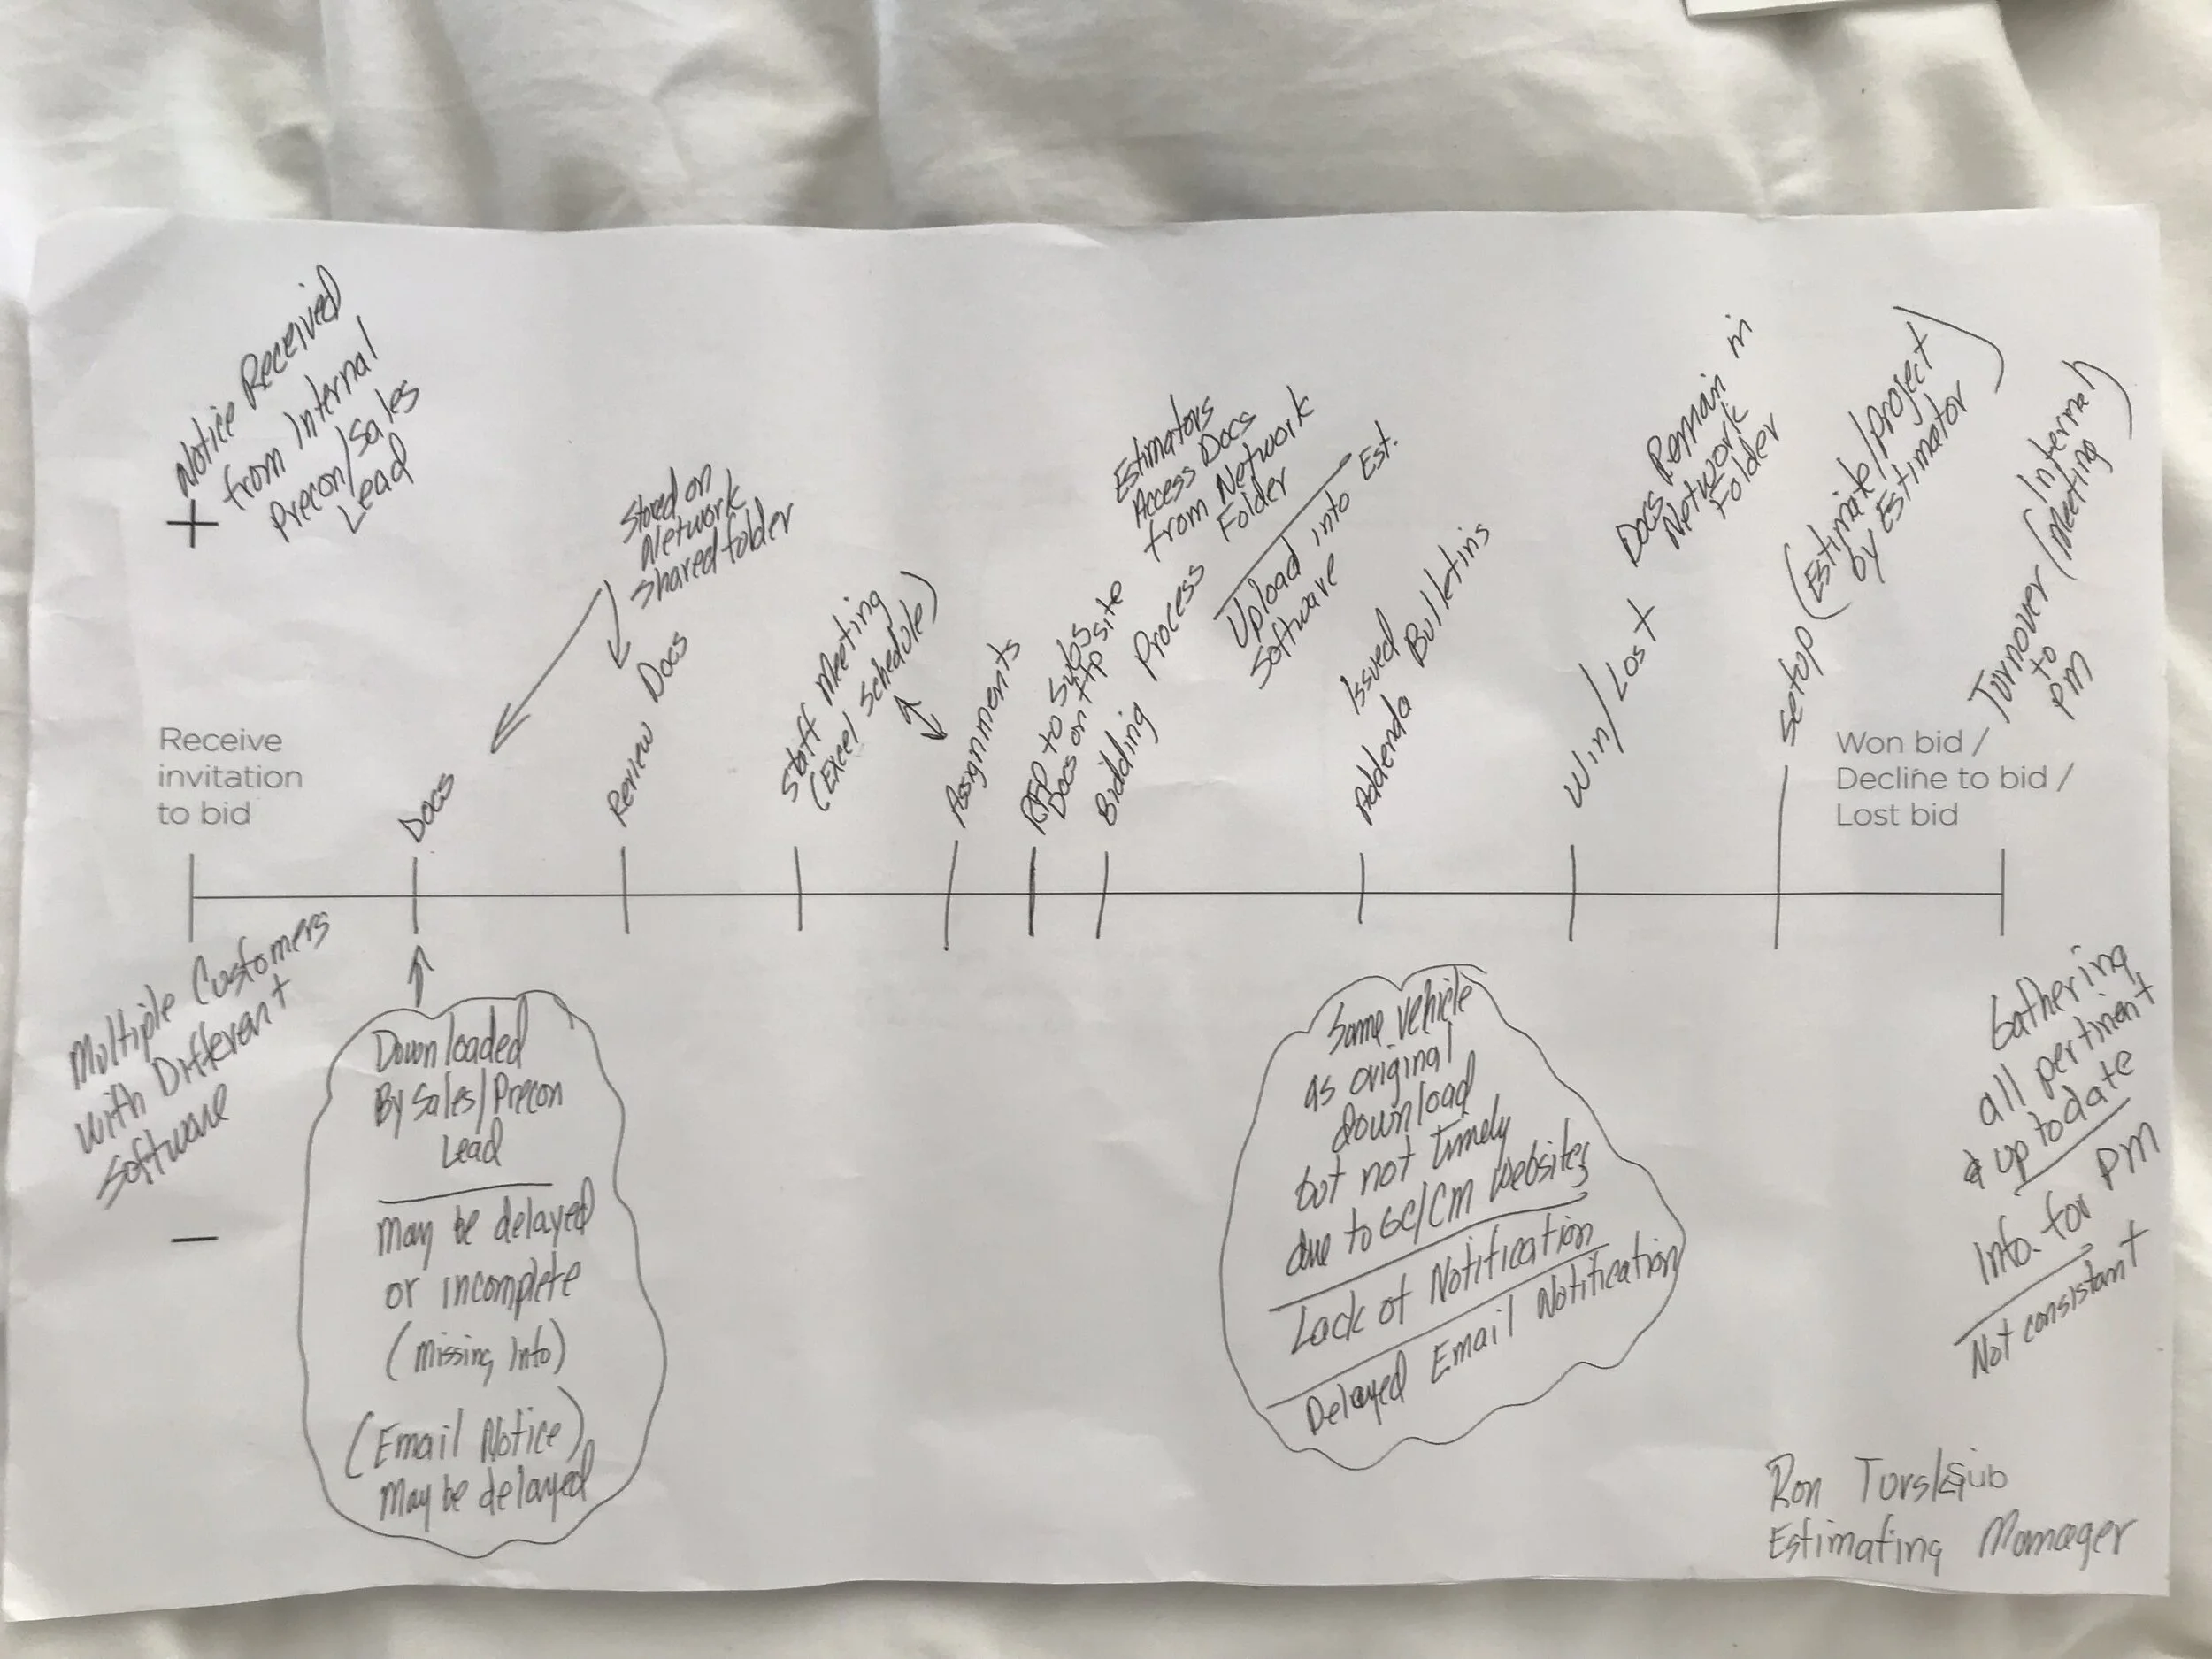 Notice Received
from Internal
Precon/Sales
Lead
+
Receive
invitation
to bid
Multiple Customers
with Different
Software
—
Docs
Downloaded
By Sales/Precon
Lead
may be delayed
or incomplete
(missing info)
(Email Notice)
may be delayed
Stored on
Network
shared folder
Review Docs
Staff Meeting
(Excel Schedule)
Assignments
RFP to Subs
Docs on ftp site
Bidding Process
Estimators
Access Docs
from Network
Folder
Upload into Est.
Software
Issued
Addenda Bulletins
Same vehicle
as original
download
but not timely
due to GC/CM websites
Lack of Notification
Delayed Email Notification
Win/Lost
Docs Remain in
Network
Folder
Setup (Estimate/project
by Estimator)
Won bid /
Decline to bid /
Lost bid
Turnover (Internal
to Meeting)
PM
Gathering
all pertinent
& up to date
Info. for PM
Not consistant
Ron Sub
Estimating Manager